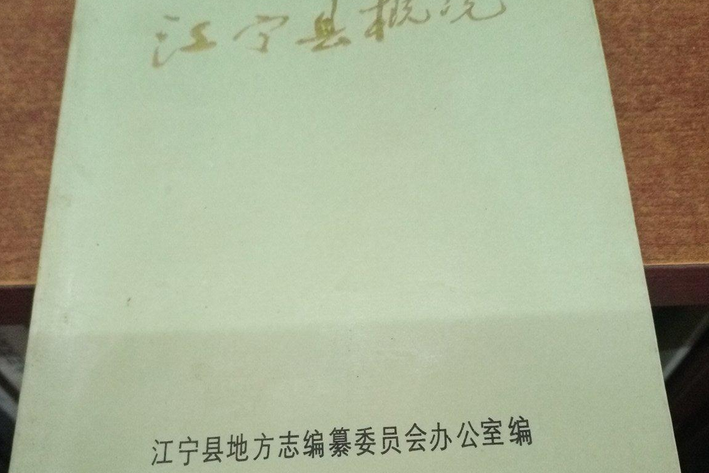 江宁县概况
江宁县地方志编纂委员会办公室编